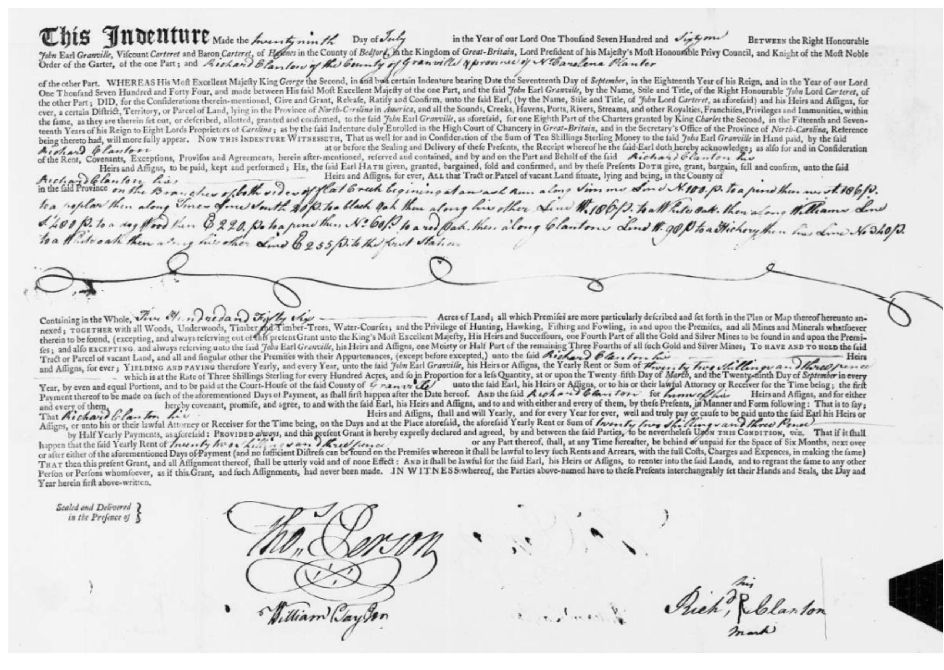 This Indenture Made the twentyninth Day of July in the Year of our Lord One Thousand Seven Hundred and Sixty one BETWEEN the Right Honourable
John Earl Granville, Viscount Carteret and Baron Carteret, of Hawnes in the County of Bedford, in the Kingdom of Great-Britain, Lord President of his Majesty's Most Honourable Privy Council, and Knight of the Most Noble
Order of the Garter, of the one Part; and Richard Clanton of the County of Granville & provence of N. Carolena Plantor
of the other Part. WHEREAS His Most Excellent Majesty King George the Second, in and by a certain Indenture bearing Date the Seventeenth Day of September, in the Eighteenth Year of his Reign, and in the Year of our Lord
One Thousand Seven Hundred and Forty Four, and made between His said Most Excellent Majesty of the one Part, and the said John Earl Granville, by the Name, Stile and Title, of the Right Honourable John Lord Carteret, of
the other Part; DID, for the Considerations therein-mentioned, Give and Grant, Release, Ratify and Confirm, unto the said Earl, (by the Name, Stile and Title, of John Lord Carteret, as aforesaid) and his Heirs and Assigns, for
ever, a certain District, Territory, or Parcel of Land, lying in the Province of North-Carolina in America, and all the Sounds, Creeks, Havens, Ports, Rivers, Streams, and other Royalties, Franchises, Privileges and Immunities, within
the same, as they are therein set out, or described, allotted, granted and confirmed, to the said John Earl Granville, as aforesaid, for one Eighth Part of the Charters granted by King Charles the Second, in the Fifteenth and Seven-
teenth Years of his Reign to Eight Lords Proprietors of Carolina; as by the said Indenture duly Enrolled in the High Court of Chancery in Great-Britain, and in the Secretary's Office of the Province of North-Carolina, Reference
being thereto had, will more fully appear. NOW THIS INDENTURE WITNESSETH, That as well for and in Consideration of the Sum of Ten Shillings Sterling Money to the said John Earl Granville in Hand paid, by the said
Richard Clanton at or before the Sealing and Delivery of these Presents, the Receipt whereof he the said Earl doth hereby acknowledge; as also for and in Consideration
of the Rent, Covenants, Exceptions, Provisos and Agreements, herein after-mentioned, reserved and contained, and by and on the Part and Behalf of the said Richard Clanton his
Heirs and Assigns, to be paid, kept and performed; He, the said Earl HATH given, granted, bargained, sold and confirmed, and by these Presents DOTH give, grant, bargain, sell and confirm, unto the said
Richard Clanton his Heirs and Assigns, for ever, ALL that Tract or Parcel of vacant Land situate, lying and being, in the County of
in the said Province on the Branches of both sides of flat Creek begining at an ash Run along Simms Line N. 100 p. to a pine then west 186 p.
to a poplar then along Line South 20 p. to black Oak then along his other Line W. 186 p. to a White oak then along Williams Line
S. 400 p. to a dog Wood then E 220 p. to a pine then No. 60 p. to a red Oak then along Clantons Line W. 98 p to a Hickory then his Line No 340 p.
to a White oak then along his other Line E 255 p. to the first Station
Containing in the Whole, Five Hundred and Fifty Six Acres of Land; all which Premises are more particularly described and set forth in the Plan or Map thereof hereunto an-
nexed; TOGETHER with all Woods, Underwoods, Timber and Timber-Trees, Water-Courses; and the Privilege of Hunting, Hawking, Fishing and Fowling, in and upon the Premises, and all Mines and Minerals whatsoever
therein to be found, (excepting, and always reserving out of this present Grant unto the King's Most Excellent Majesty, His Heirs and Successors, one Fourth Part of all the Gold and Silver Mines to be found in and upon the Premi-
ses; and also EXCEPTING, and always reserving unto the said John Earl Granville, his Heirs and Assigns, one Moiety or Half Part of the remaining Three Fourths of all such Gold and Silver Mines; TO HAVE AND TO HOLD the said
Tract or Parcel of vacant Land, and all and singular other the Premises with their Appurtenances, (except before excepted,) unto the said Richard Clanton his Heirs
and Assigns, for ever; YIELDING AND PAYING therefore Yearly, and every Year, unto the said John Earl Granville, his Heirs or Assigns, the Yearly Rent or Sum of twenty two Shillings and three pence
which is at the Rate of Three Shillings Sterling for every Hundred Acres, and so in Proportion for a less Quantity, at or upon the Twenty-fifth Day of March, and the Twenty-ninth Day of September in every
Year, by even and equal Portions, and to be paid at the Court-House of the said County of Granville unto the said Earl, his Heirs or Assigns, or to his or their lawful Attorney or Receiver for the Time being; the first
Payment thereof to be made on such of the aforementioned Days of Payment, as shall first happen after the Date hereof. And the said Richard Clanton for himself his Heirs and Assigns, and for either
and every of them, hereby covenant, promise, and agree, to and with the said Earl, his Heirs and Assigns, and to and with either and every of them, by these Presents, in Manner and Form following: That is to say;
That Richard Clanton his Heirs and Assigns, shall and will Yearly, and for every Year for ever, well and truly pay or cause to be paid unto the said Earl his Heirs or
Assigns, or unto his or their lawful Attorney or Receiver for the Time being, on the Days and at the Place aforesaid, the aforesaid Yearly Rent or Sum of twenty two Shillings and three Pence
by Half Yearly Payments, as aforesaid: PROVIDED always, and this present Grant is hereby expresly declared and agreed, by and between the said Parties, to be nevertheless UPON THIS CONDITION, viz. That if it shall
happen that the said Yearly Rent of twenty two shillings and three pence or any Part thereof, shall, at any Time hereafter, be behind or unpaid for the Space of Six Months, next over
or after either of the aforementioned Days of Payment (and no sufficient Distress can be found on the Premises whereon it shall be lawful to levy such Rents and Arrears, with the full Costs, Charges and Expences, in making the same)
THAT then this present Grant, and all Assignment thereof, shall be utterly void and of none Effect: AND it shall be lawful for the said Earl, his Heirs or Assigns, to reenter into the said Lands, and to regrant the same to any other
Person or Persons whomsoever, as if this Grant, and such Assignments, had never been made. IN WITNESS whereof, the Parties above-named have to these Presents interchangeably set their Hands and Seals, the Day and
Year herein first above-written.
Sealed and Delivered
in the Presence of
Thos. Person
his
Richd. R Clanton
mark